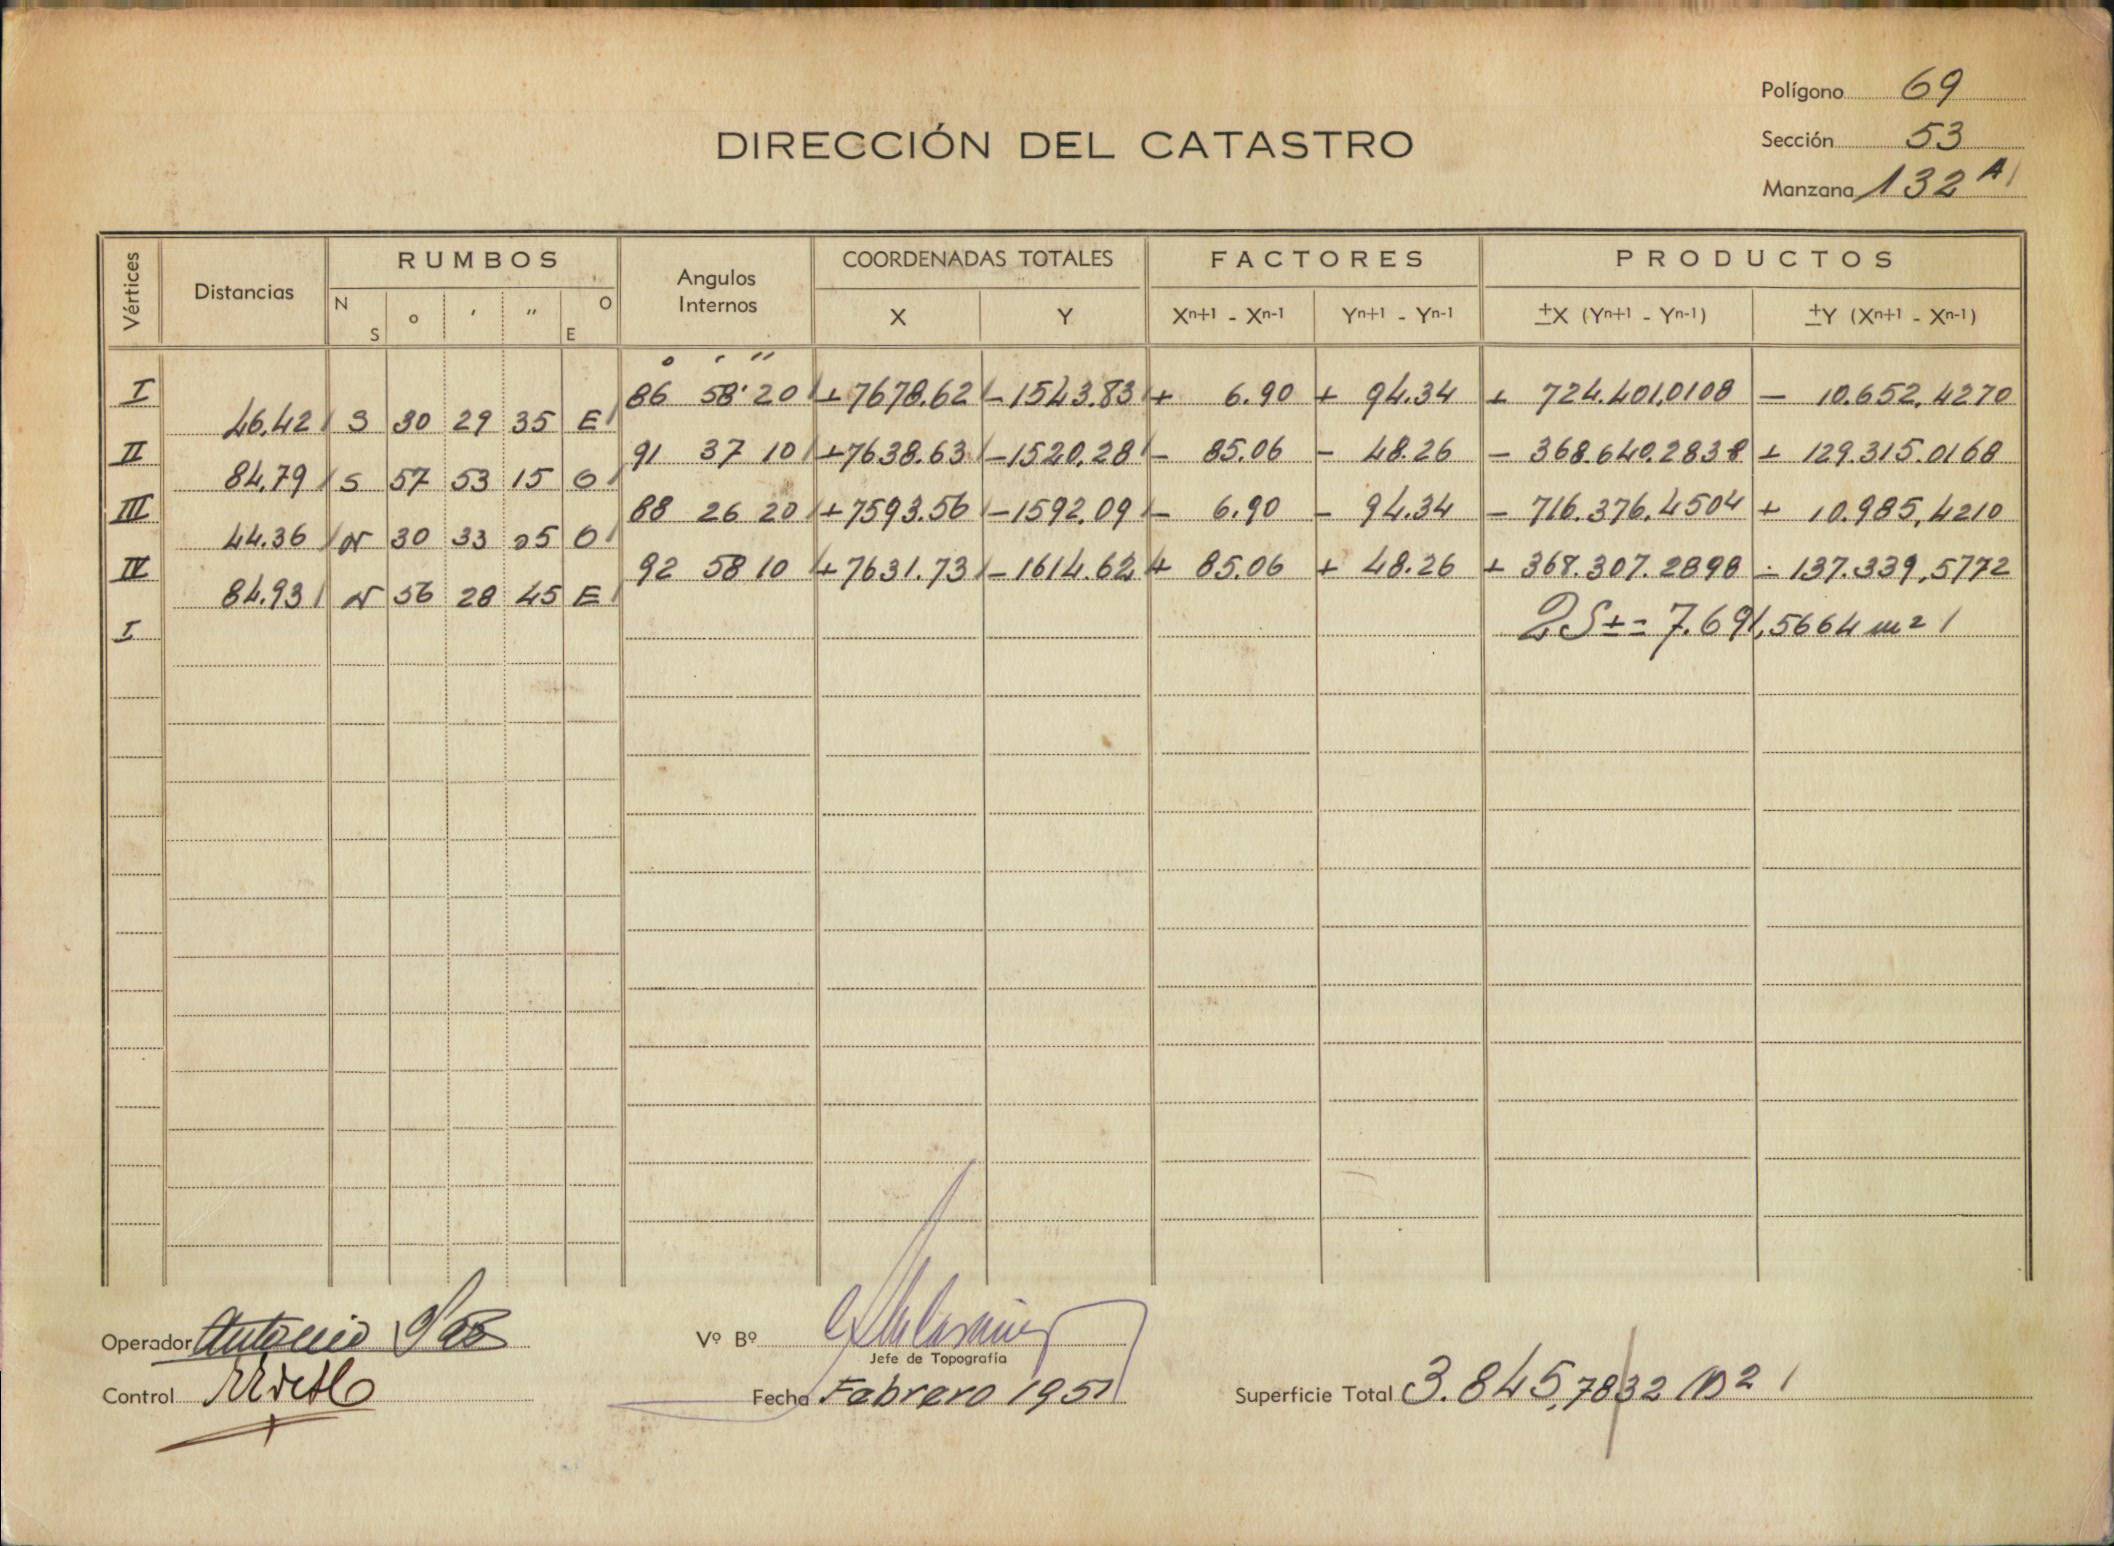 Polígono 69
DIRECCIÓN DEL CATASTRO
Sección 53
Manzana 132 A
Vértices Distancias RUMBOS Angulos Internos COORDENADAS TOTALES FACTORES PRODUCTOS
N S o ' " O E X Y Xn+1 - Xn-1 Yn+1 - Yn-1 ±X (Yn+1 - Yn-1) ±Y (Xn+1 - Xn-1)
o ' "
I 86 58' 20 +7678.62 -1543.83 + 6.90 + 94.34 + 724.401,0108 - 10.652,4270
46.42 S 30 29 35 E
II 91 37 10 +7638.63 -1520.28 - 85.06 - 48.26 - 368.640.2838 + 129.315.0168
84,79 S 57 53 15 O
III 88 26 20 +7593.56 -1592.09 - 6.90 - 94.34 - 716.376,4504 + 10.985,4210
44.36 N 30 33 05 O
IV 92 58 10 +7631.73 -1614.62 + 85.06 + 48.26 + 368.307.2898 - 137.339,5772
84.93 N 56 28 45 E
I 2S ± = 7.691,5664 m2
Operador Antonio
Vº Bº
Jefe de Topografía
Control
Fecha Febrero 1951
Superficie Total 3.845,7832 m2